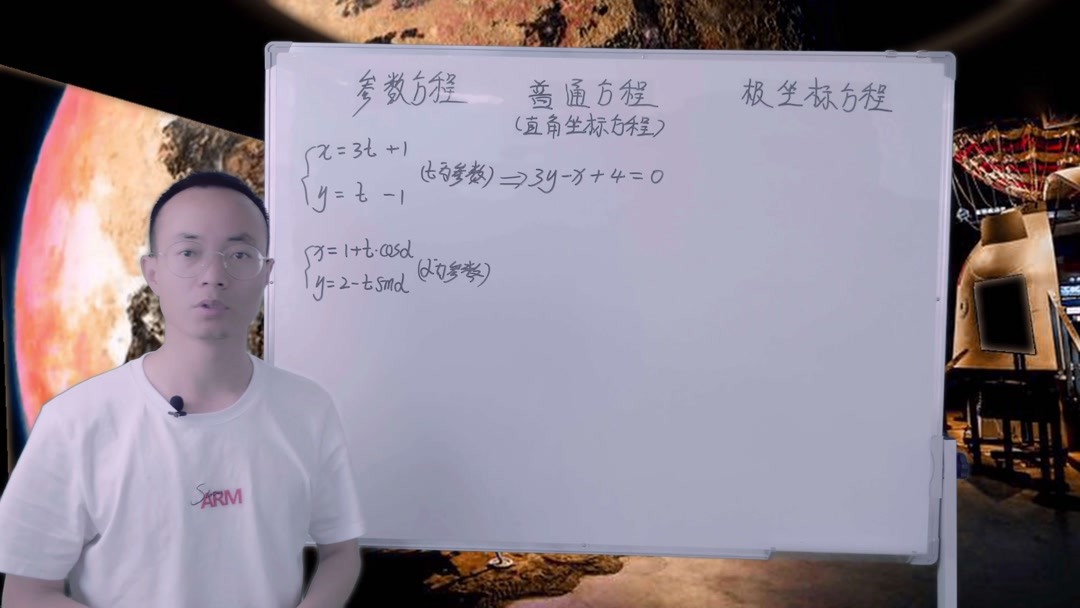 参数方程
普通方程
(直角坐标方程)
极坐标方程
x=3t+1
y=t-1
(t为参数) ⇒ 3y-x+4=0
x=1+t·cosα
y=2-tsinα
(α为参数)
ARM